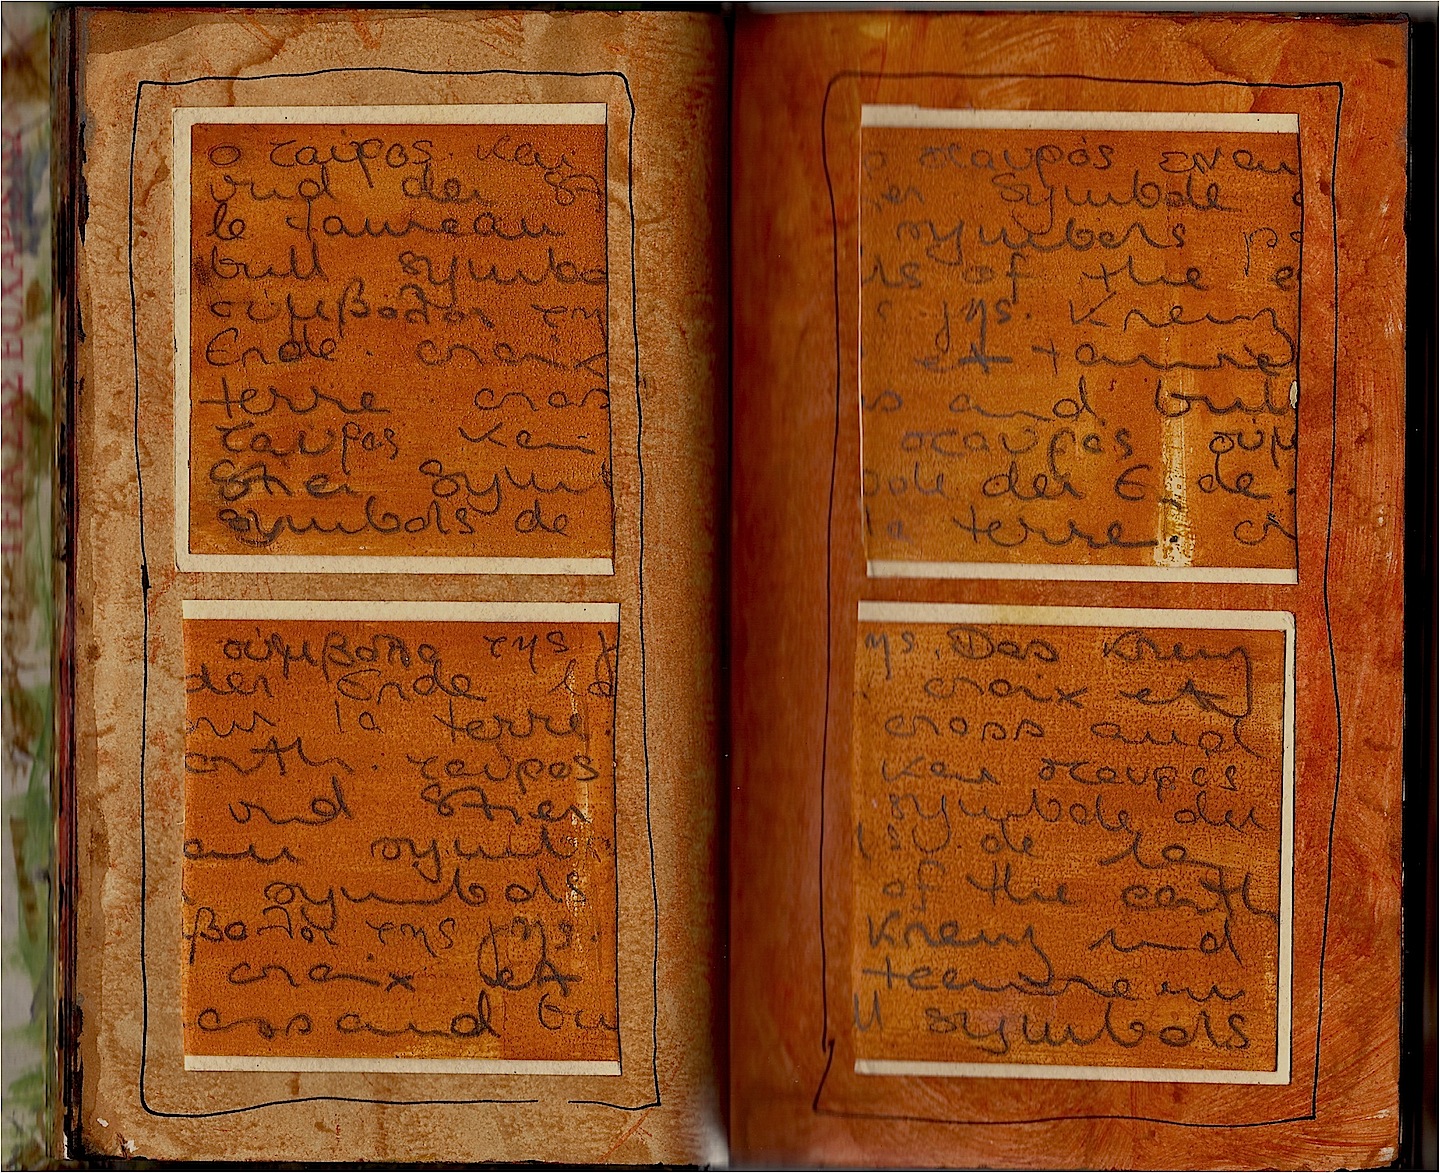 ο ταύρος και
und der
le taureau
bull symbo
σύμβολον της
Erde. croix
terre cross
ταύρος και
Stier Symb
symbols de
σύμβολα της γ
der Erde la
our la terre.
earth. ταυρος
und Stier
au symb
symbols
βολον της γης.
croix et
cross and bu
ο σταυρός είναι
er Symbole
symbols po
ls of the e
ς γης. Kreuz
et taure
s and bull
σταυρος σύμ
bole der Erde.
la terre. cr
ης. Das Kreuz
croix et
cross and
και σταυρος
symbole der
de la
of the earth
Kreuz und
taureau
ll symbols